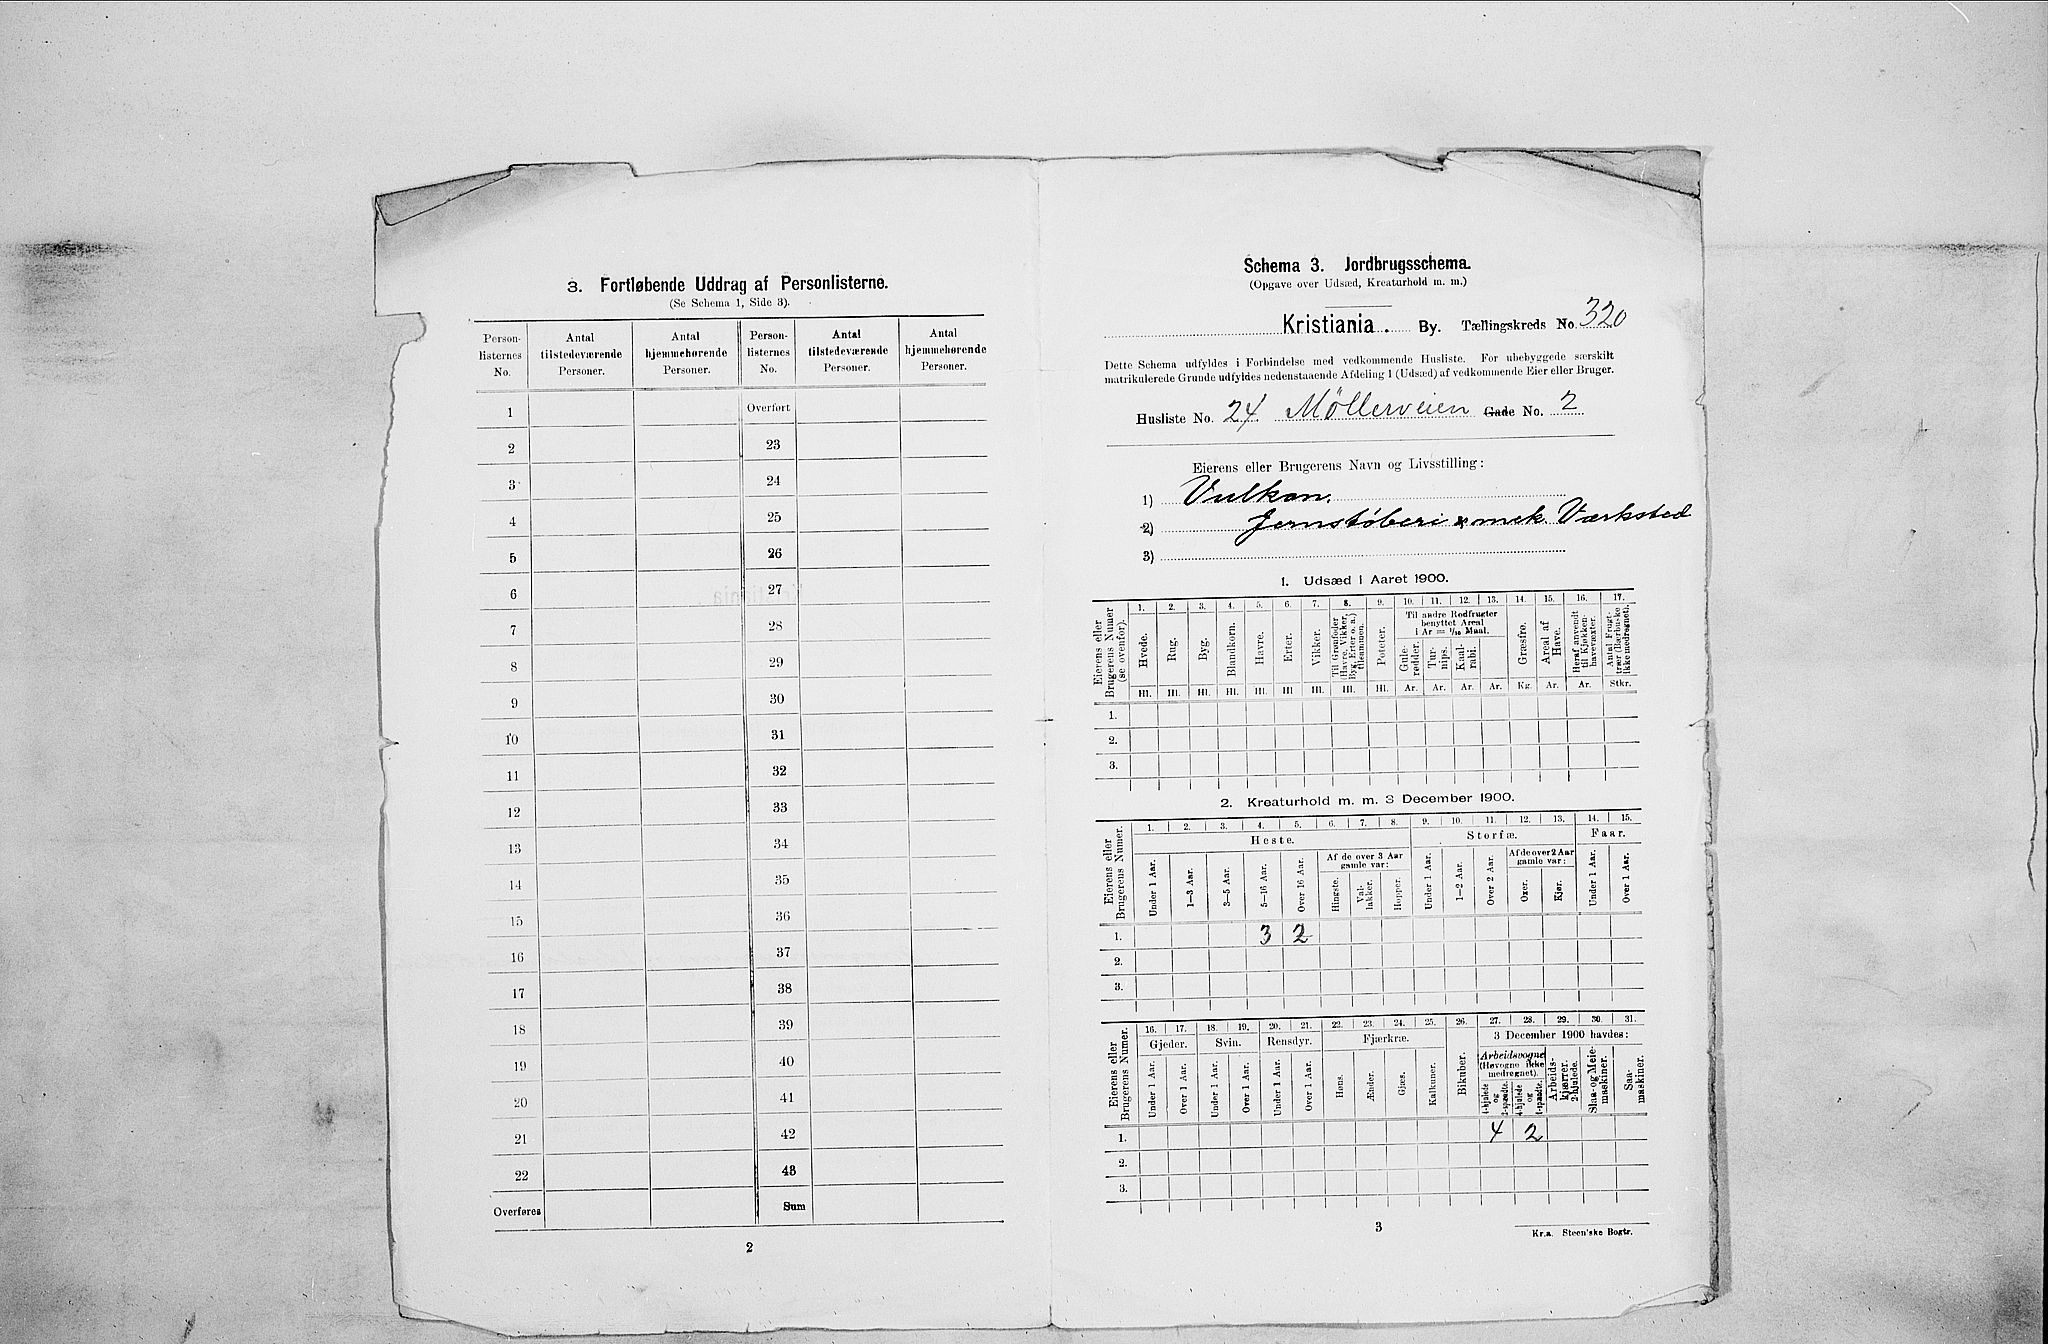 3. Fortløbende Uddrag af Personlisterne.
(Se Schema 1, Side 3).
Person-listernes No. | Antal tilstedeværende Personer. | Antal hjemmehørende Personer. | Person-listernes No. | Antal tilstedeværende Personer. | Antal hjemmehørende Personer.
1 | Overført
2 | 23
3 | 24
4 | 25
5 | 26
6 | 27
7 | 28
8 | 29
9 | 30
10 | 31
11 | 32
12 | 33
13 | 34
14 | 35
15 | 36
16 | 37
17 | 38
18 | 39
19 | 40
20 | 41
21 | 42
22 | 43
Overføres | Sum
2
Schema 3. Jordbrugsschema.
(Opgave over Udsæd, Kreaturhold m. m.)
Kristiania. By. Tællingskreds No. 320
Dette Schema udfyldes i Forbindelse med vedkommende Husliste. For ubebyggede særskilt
matrikulerede Grunde udfyldes nedenstaaende Afdeling 1 (Udsæd) af vedkommende Eier eller Bruger.
Husliste No. 24 Möllerveien Gade No. 2
Eierens eller Brugerens Navn og Livsstilling:
1) Vulkan.
2) Jernstøberi & mek. Værksted
3)
1. Udsæd i Aaret 1900.
Eierens eller Brugerens Numer (se ovenfor). | 1. | 2. | 3. | 4. | 5. | 6. | 7. | 8. | 9. | 10. | 11. | 12. | 13. | 14. | 15. | 16. | 17.
Hvede. | Rug. | Byg. | Blandkorn. | Havre. | Erter. | Vikker. | Til Grønfoder (Havre, Vikker, Byg, Erter o. a.) tilsammen. | Poteter. | Til andre Rodfrugter benyttet Areal i Ar = 1/10 Maal. | Gule-rødder. | Tur-nips. | Kaal-rabi. | Græsfrø. | Areal af Have. | Heraf anvendt til Kjøkken-havevæxter. | Antal Frugt-trær (Bærbuske ikke medregnet).
Hl. | Hl. | Hl. | Hl. | Hl. | Hl. | Hl. | Hl. | Hl. | Ar. | Ar. | Ar. | Ar. | Kg. | Ar. | Ar. | Stkr.
1.
2.
3.
2. Kreaturhold m. m. 3 December 1900.
Eierens eller Brugerens Numer. | 1. | 2. | 3. | 4. | 5. | 6. | 7. | 8. | 9. | 10. | 11. | 12. | 13. | 14. | 15.
Heste. | Storfæ. | Faar.
Under 1 Aar. | 1—3 Aar. | 3—5 Aar. | 5—16 Aar. | Over 16 Aar. | Af de over 3 Aar gamle var: | Hingste. | Val-lakker. | Hopper. | Under 1 Aar. | 1—2 Aar. | Over 2 Aar. | Af de over 2 Aar gamle var: | Oxer. | Kjør. | Under 1 Aar. | Over 1 Aar.
1. | 3 | 2
2.
3.
Eierens eller Brugerens Numer. | 16. | 17. | 18. | 19. | 20. | 21. | 22. | 23. | 24. | 25. | 26. | 27. | 28. | 29. | 30. | 31.
Gjeder. | Svin. | Rensdyr. | Fjærkræ. | Bikuber. | 3 December 1900 havdes:
Under 1 Aar. | Over 1 Aar. | Under 1 Aar. | Over 1 Aar. | Under 1 Aar. | Over 1 Aar. | Høns. | Ænder. | Gjæs. | Kalkuner. | Arbeidsvogne (Høvogne ikke medregnet). | 4-hjulede og 2-spændte. | 4-hjulede og 1-spændte. | Arbeids-kjærrer, 2-hjulede. | Slaa- og Meie-maskiner. | Saa-maskiner.
1. | 4 | 2
2.
3.
3
Kr.a. Steen'ske Bogtr.